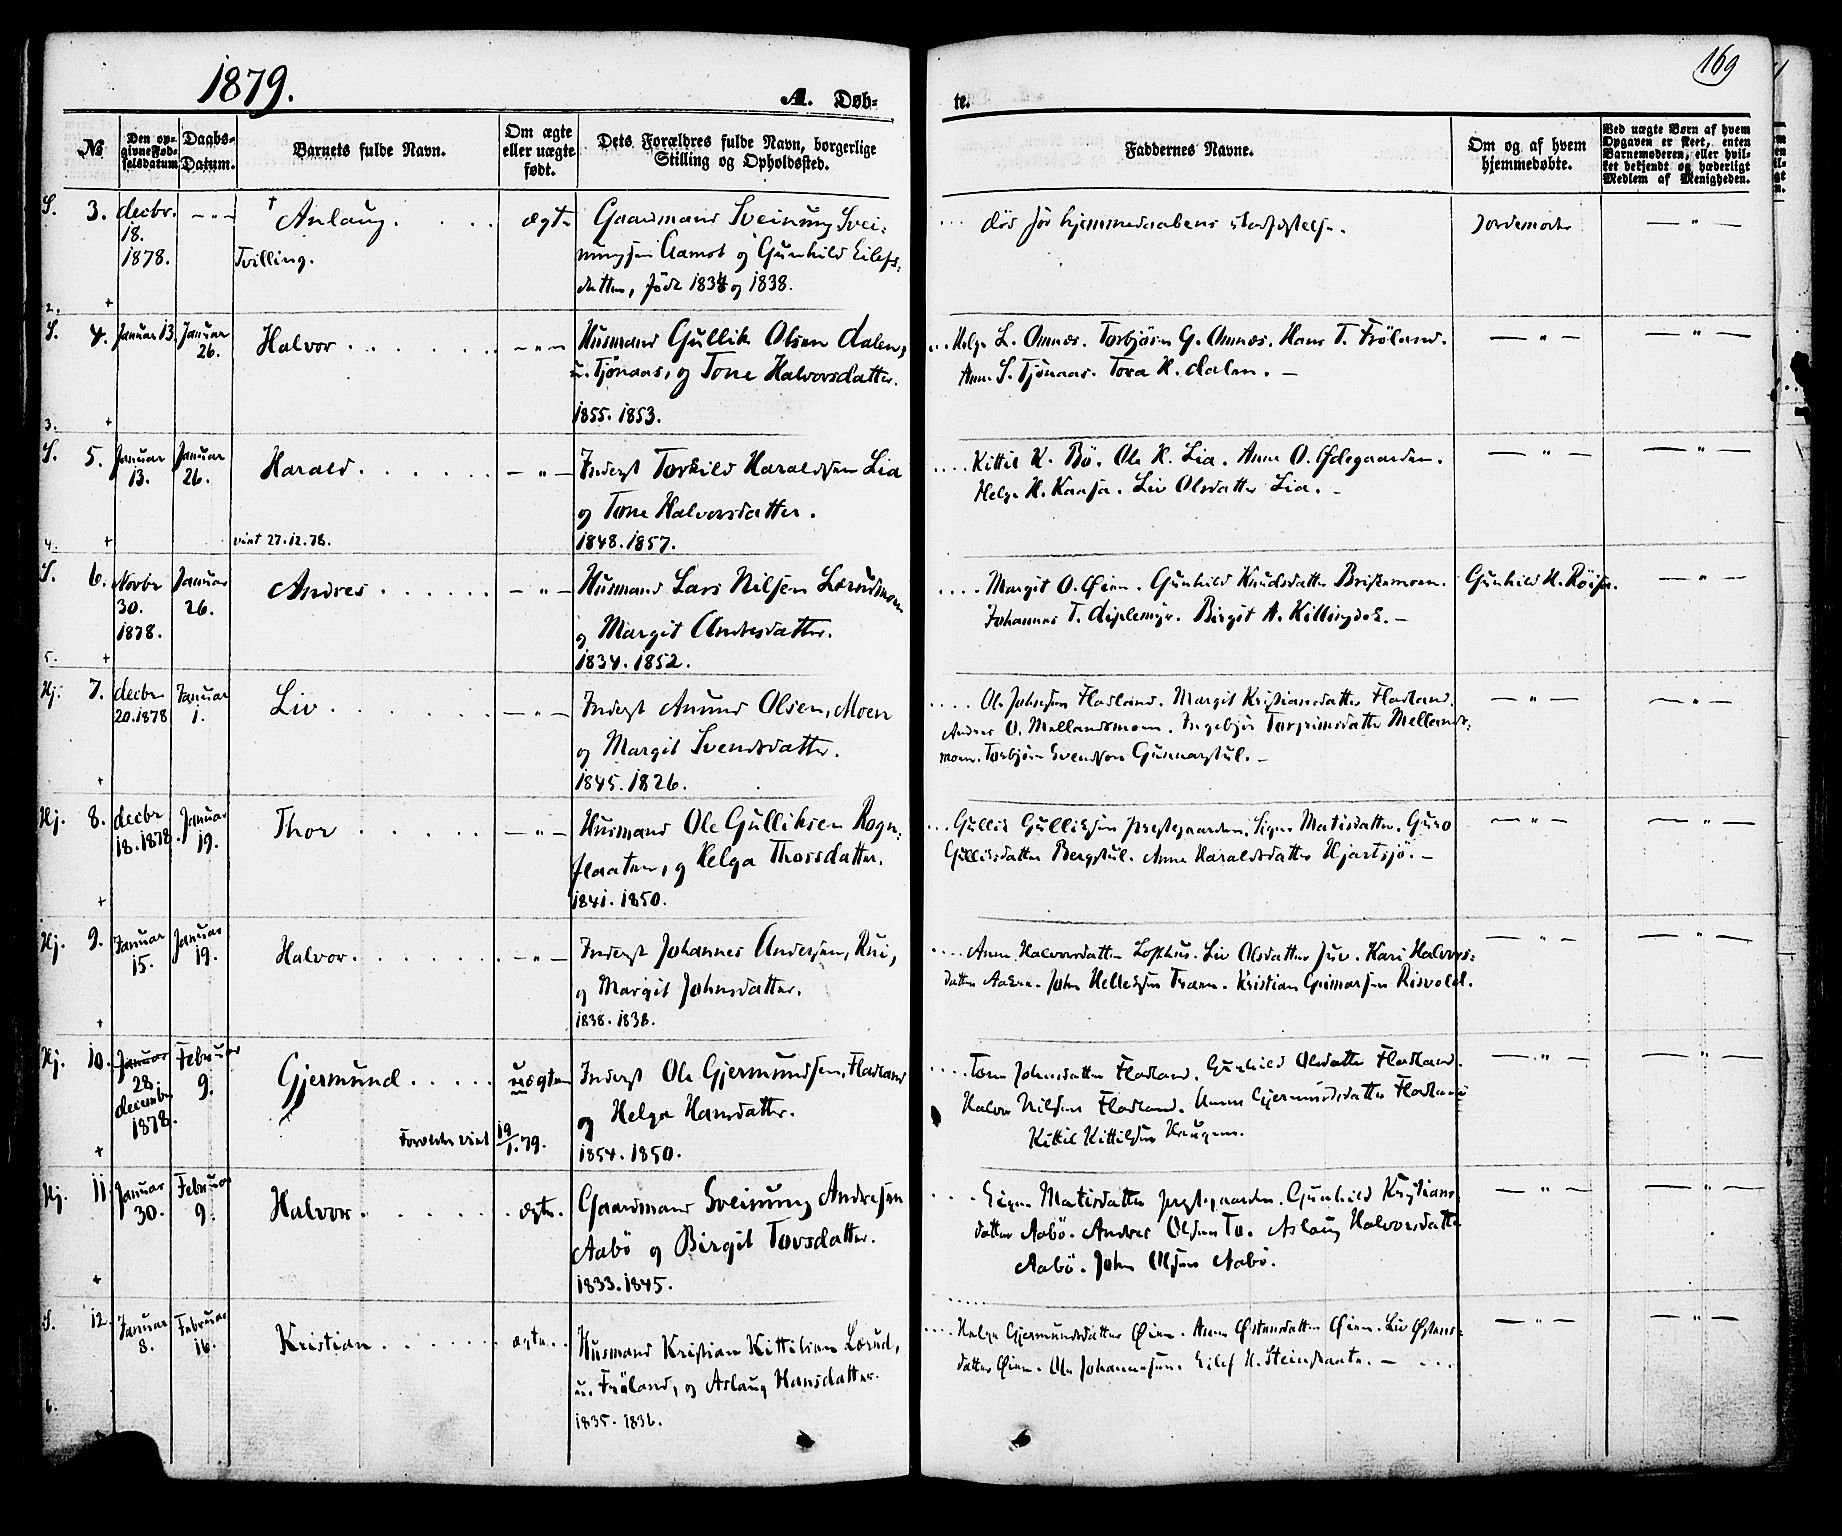 1879.
A. Døb-
te.
169
№
Den op-
givne Fød-
selsdatum
Daabs-
Datum.
Barnets fulde Navn.
Om ægte
eller uægte
født.
Dets Forældres fulde Navn, borgerlige
Stilling og Opholdssted.
Faddernes Navne.
Om og af hvem
hjemmedøbte.
Ved uægte Børn af hvem
Opgaven er skeet, enten
Barnemoderen, eller hvil-
ket bekjendt og hæderligt
Medlem af Menigheden.
S. 3. decbr. 18. 1878. — " — † Aslaug. Tvilling. ægte
Gaardmand Sveinung Svei-
nungsen Aamot og Gunhild Eilefs-
datter, fødte 1834 og 1838.
død før hjemmedaabens stadfæstelse.
Jordemoder — " —
2. +
S. 4. Januar 13. Januar 26. Halvor — " —
Husmand Gullik Olsen Dalen,
u. Tjønaas, og Tone Halvorsdatter.
1855. 1853.
Helge L. Omnæs. Torbjørn G. Omnæs. Hans T. Frøland.
Anne S. Tjønaas. Tora H. Dalen. —
— " — — " —
3. +
S. 5. Januar 13. Januar 26. Harald — " —
Inderst Torkild Haraldsen Lia
og Tone Halvorsdatter.
1848. 1857.
Kittil K. Bö. Ole H. Lia. Anne O. Ødegaarden.
Helge H. Kaasa. Liv Olsdatter Lia. —
— " — — " —
viet 27.12.78.
4. +
S. 6. Novbr 30. 1878. Januar 26. Andres — " —
Husmand Lars Nilsen Lærudmoen
og Margit Andresdatter.
1834. 1852.
Margit O. Øien. Gunhild Knudsdatter Bristemoen.
Johannes T. Diplemyr. Birgit A. Killingdal. —
Gunhild H. Röisa. — " —
5. +
Hj. 7. decbr 20. 1878 Januar 1. Liv — " —
Inderst Anund Olsen, Moen
og Margit Svendsdatter.
1845. 1826.
Ole Johnsen Fladland. Margit Kristiansdatter Fladland.
Andres O. Mellandsmoen. Ingebjør Torgrimsdatter Mellands-
moen. Torbjørn Svendsen Gunnarstul. —
— " — — " —
+
Hj. 8. decbr 18. 1878. Januar 19. Thor — " —
Husmand Ole Gulliksen Rogn-
flaaten, og Helga Thorsdatter.
1841. 1850.
Gullik Gulliksen Prestegaarden. Signe Matisdatter. Guro
Gulliksdatter Bergstul. Anne Haraldsdatter Hjartsjø. —
— " — — " —
+
Hj. 9. Januar 15. Januar 19. Halvor — " —
Inderst Johannes Andersen, Rui,
og Margit Johnsdatter.
1838. 1838.
Anne Halvorsdatter Lofthus. Liv Olsdatter Juv. Kari Halvors-
datter Aakre. John Helleksen Traen. Kristian Gunnarsen Risvold.
— " — — " —
+
Hj. 10. Januar 28. december 1878. Februar 9. Gjermund uægte
Inderst Ole Gjermundsen, Fladland
og Helga Hansdatter.
1854. 1850.
Tone Johnsdatter Fladland. Gunhild Olsdatter Fladland.
Halvor Nilsen Fladland. Anne Gjermundsdatter Fladland
Kittil Kittilsen Haugen.
— " — — " —
Forældre viet 19/1.79.
+
Hj. 11. Januar 30. Februar 9. Halvor ægte.
Gaardmand Sveinung Andresen
Aabö og Birgit Tovsdatter.
1833. 1845.
Signe Matisdatter Prestegaarden. Gunhild Kristians-
datter Aabö. Andres Olsen To. Aslaug Halvorsdatter
Aabö. John Olsen Aabö.
— " — — " —
+
S. 12. Januar 8. Februar 16. Kristian ægte
Husmand Kristian Kittilsen Lærud,
u. Frøland, og Aslaug Hansdatter.
1835. 1836.
Helge Gjermundsdatter Øien. Anne Østensdatter Øien. Liv Østens-
datter Øien. Ole Johannesen. Eilef H. Steindraate. —
— " — — " —
6.